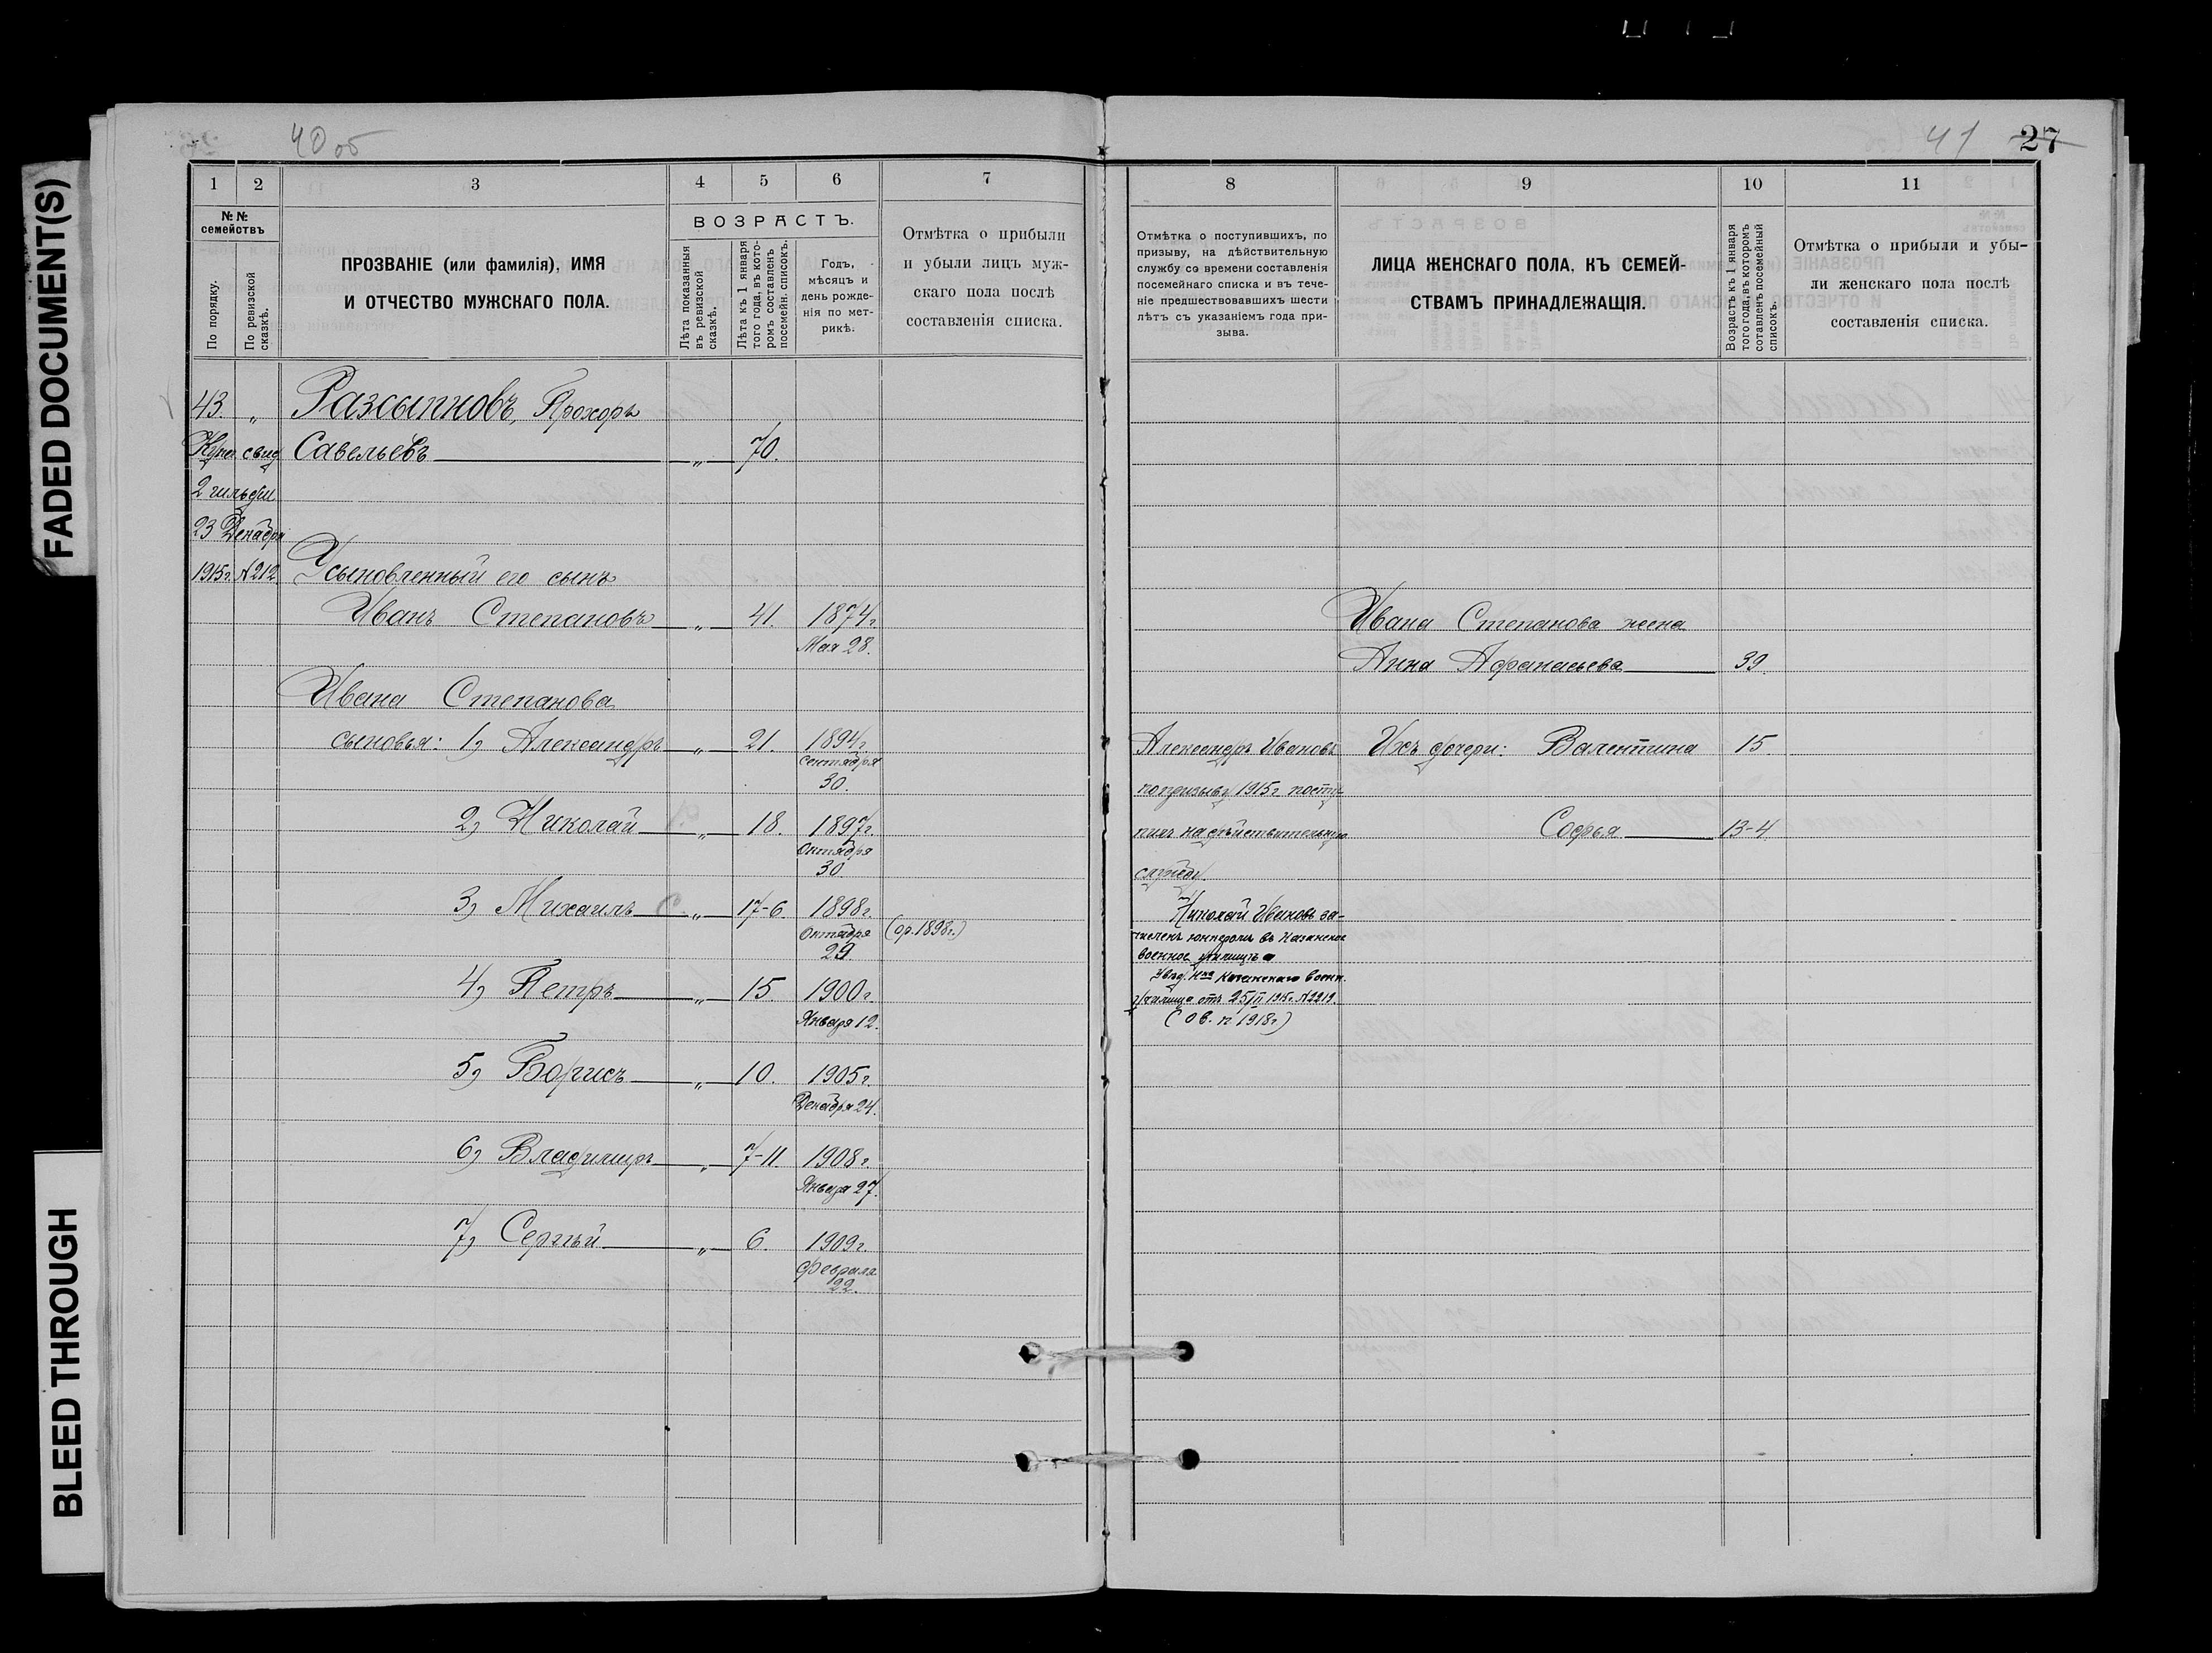 FADED DOCUMENT(S)
BLEED THROUGH
40 об
1 2 3 4 5 6 7
№№ семействъ
По порядку.
По ревизской сказкѣ.
ПРОЗВАНІЕ (или фамилія), ИМЯ
И ОТЧЕСТВО МУЖСКАГО ПОЛА.
ВОЗРАСТЪ.
Лѣта показанныя
въ ревизской
сказкѣ.
Лѣта къ 1 января
того года, въ кото-
ромъ составленъ
посемейн. списокъ.
Годъ,
мѣсяцъ и
день рожде-
нія по мет-
рикѣ.
Отмѣтка о прибыли
и убыли лицъ муж-
скаго пола послѣ
составленія списка.
43. „ Разсыпновъ, Прохоръ
Купеч. свид. Савельевъ „ 70.
2 гильдіи
23 Декабря
1915г. №212. Усыновленный его сынъ
Иванъ Степановъ „ 41. 1874г.
Мая 28.
Ивана Степанова
сыновья: 1) Александръ „ 21. 1894г.
Сентября
30.
2) Николай „ 18. 1897г.
Октября
30.
3) Михаилъ „ 17-6. 1898г.
Октября (ор. 1898г.)
29.
4) Петръ „ 15. 1900г.
Января 12.
5) Борисъ „ 10. 1905г.
Декабря 24.
6) Владимиръ „ 7-11. 1908г.
Января 27.
7) Сергѣй „ 6. 1909г.
Февраля
22.
41 27
8 9 10 11
Отмѣтка о поступившихъ, по
призыву, на дѣйствительную
службу со времени составленія
посемейнаго списка и въ тече-
ніе предшествовавшихъ шести
лѣтъ съ указаніемъ года при-
зыва.
ЛИЦА ЖЕНСКАГО ПОЛА, КЪ СЕМЕЙ-
СТВАМЪ ПРИНАДЛЕЖАЩІЯ.
Возрастъ къ 1 января
того года, въ которомъ
сотавленъ посемейный
списокъ.
Отмѣтка о прибыли и убы-
ли женскаго пола послѣ
составленія списка.
Ивана Степанова жена
Анна Афанасьева 39.
Александръ Ивановъ Ихъ дочери: Валентина 15.
по призыву 1915г. посту-
пилъ на дѣйствительную Софья 13-4.
службу.
Николай Ивановъ за-
численъ юнкеромъ въ Казанское
военное училище
Увѣд. Нка Казанскаго воен.
училища отъ 25/II 1915г. №2219.
(О в. п. 1918г.)